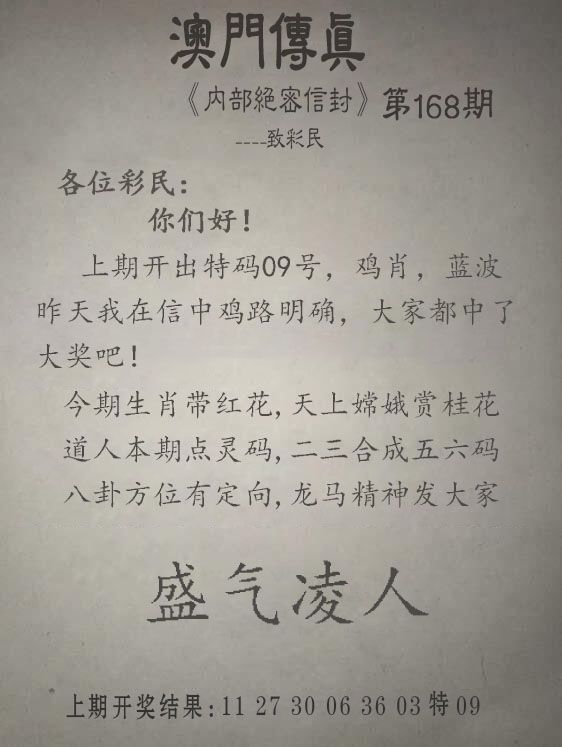 澳門傳真
《内部絕密信封》第168期
----致彩民
各位彩民:
你们好!
上期开出特码09号，鸡肖，蓝波
昨天我在信中鸡路明确，大家都中了
大奖吧!
今期生肖带红花,天上嫦娥赏桂花
道人本期点灵码,二三合成五六码
八卦方位有定向,龙马精神发大家
盛气凌人
上期开奖结果:11 27 30 06 36 03特09